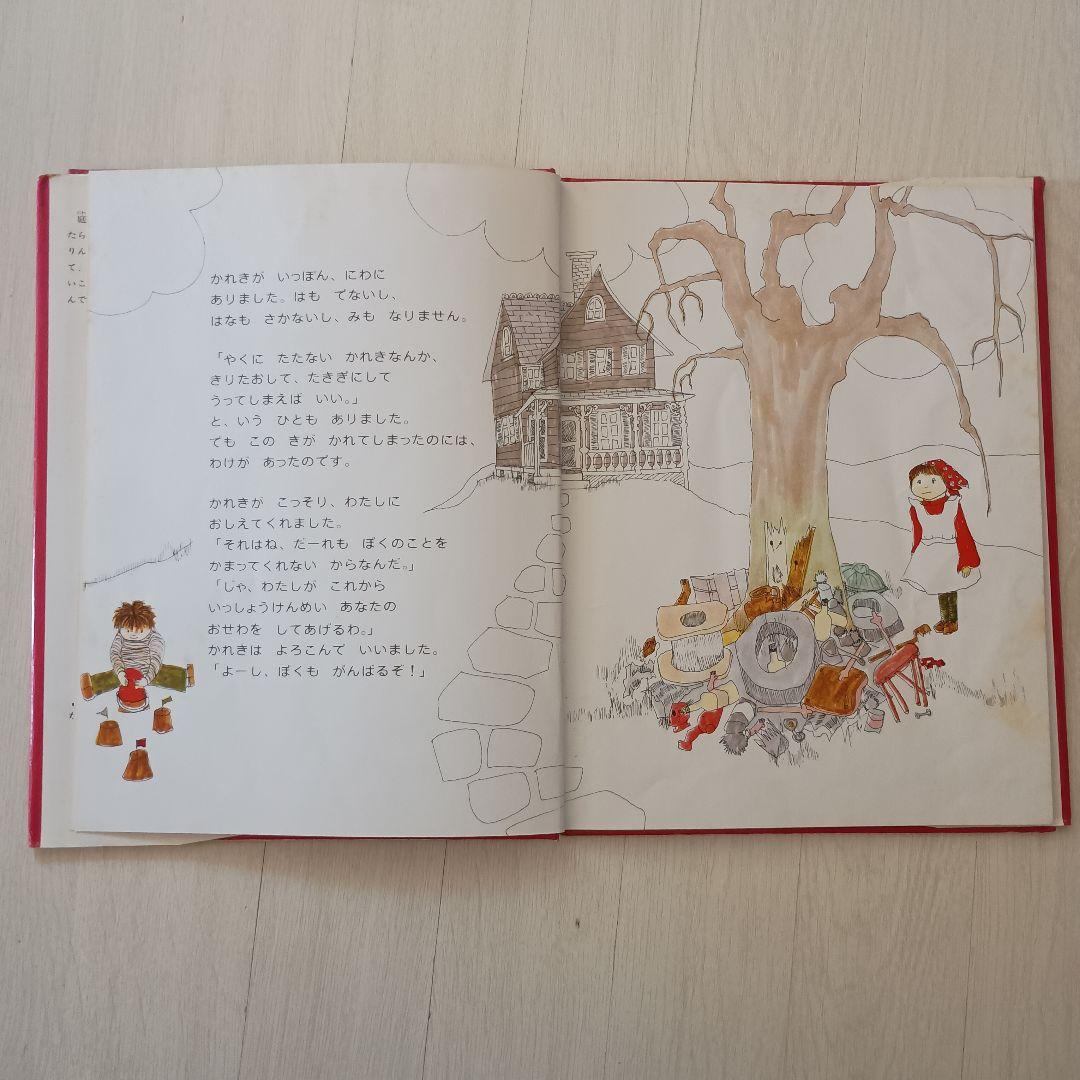 かれきが　いっぽん、にわに
ありました。はも　でないし、
はなも　さかないし、みも　なりません。
「やくに　たたない　かれきなんか、
きりたおして、たきぎにして
うってしまえば　いい。」
と、いう　ひとも　ありました。
でも　この　きが　かれてしまったのには、
わけが　あったのです。
かれきが　こっそり、わたしに
おしえてくれました。
「それはね、だーれも　ぼくのことを
かまってくれない　からなんだ。」
「じゃ、わたしが　これから
いっしょうけんめい　あなたの
おせわを　してあげるわ。」
かれきは　よろこんで　いいました。
「よーし、ぼくも　がんばるぞ！」